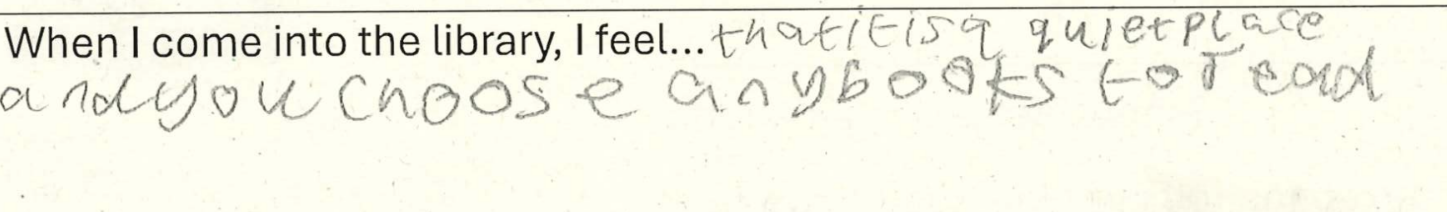 When I come into the library, I feel... that it is a quiet place
and you choose any books to read